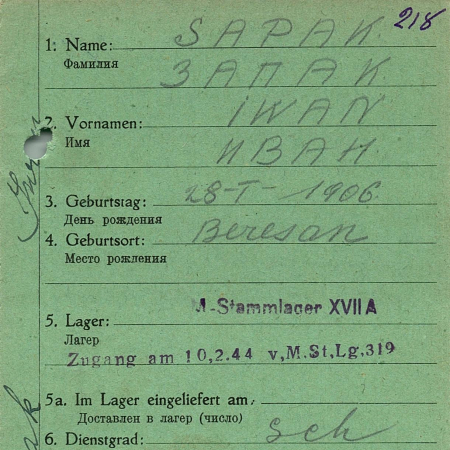 218
1. Name: SAPAK
Фамилия ЗАПАК
2. Vornamen: IWAN
Имя ИВАН
3. Geburtstag: 28-I-1906
День рождения
4. Geburtsort: Beresan
Место рождения
M-Stammlager XVII A
5. Lager:
Лагерь
Zugang am 10,2.44 v,M.St,Lg.319
5a. Im Lager eingeliefert am:
Доставлен в лагер (число)
6. Dienstgrad: Sch